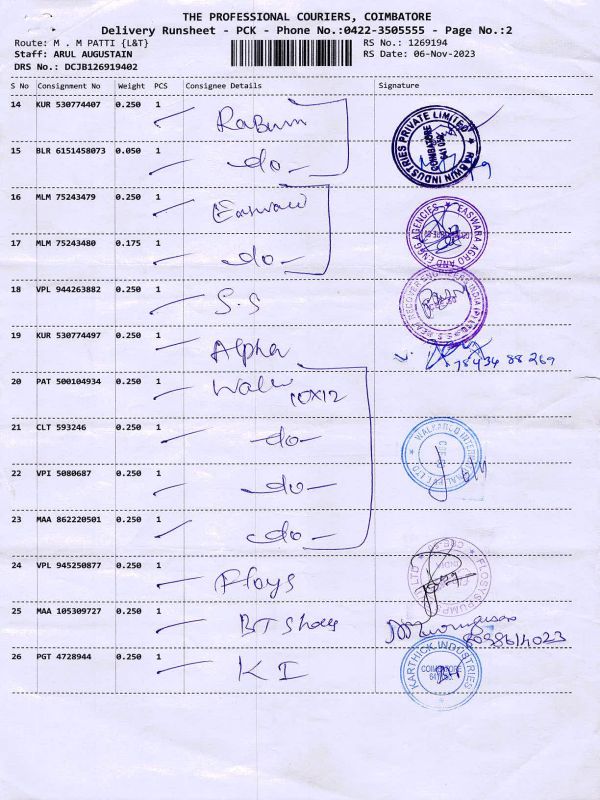 THE PROFESSIONAL COURIERS, COIMBATORE
Delivery Runsheet - PCK - Phone No.:0422-3505555 - Page No.:2
Route: M . M PATTI {L&T}
RS No.: 1269194
Staff: ARUL AUGUSTAIN
RS Date: 06-Nov-2023
DRS No.: DCJB126919402
S No Consignment No Weight PCS Consignee Details Signature
14 KUR 530774407 0.250 1
RABWIN INDUSTRIES PRIVATE LIMITED
COIMBATORE
15 BLR 6151458073 0.050 1 -do-
16 MLM 75243479 0.250 1
EASWARA AGRO AND ENGG AGENCIES
17 MLM 75243480 0.175 1 -do-
18 VPL 944263882 0.250 1 S.S
19 KUR 530774497 0.250 1 Alpha
78434 88269
20 PAT 500104934 0.250 1 10X12
21 CLT 593246 0.250 1 -do-
22 VPI 5080687 0.250 1 -do-
23 MAA 862220501 0.250 1 -do-
24 VPL 945250877 0.250 1
25 MAA 105309727 0.250 1 BT Shoes
26 PGT 4728944 0.250 1 K I
KARTHICK INDUSTRIES
COIMBATORE